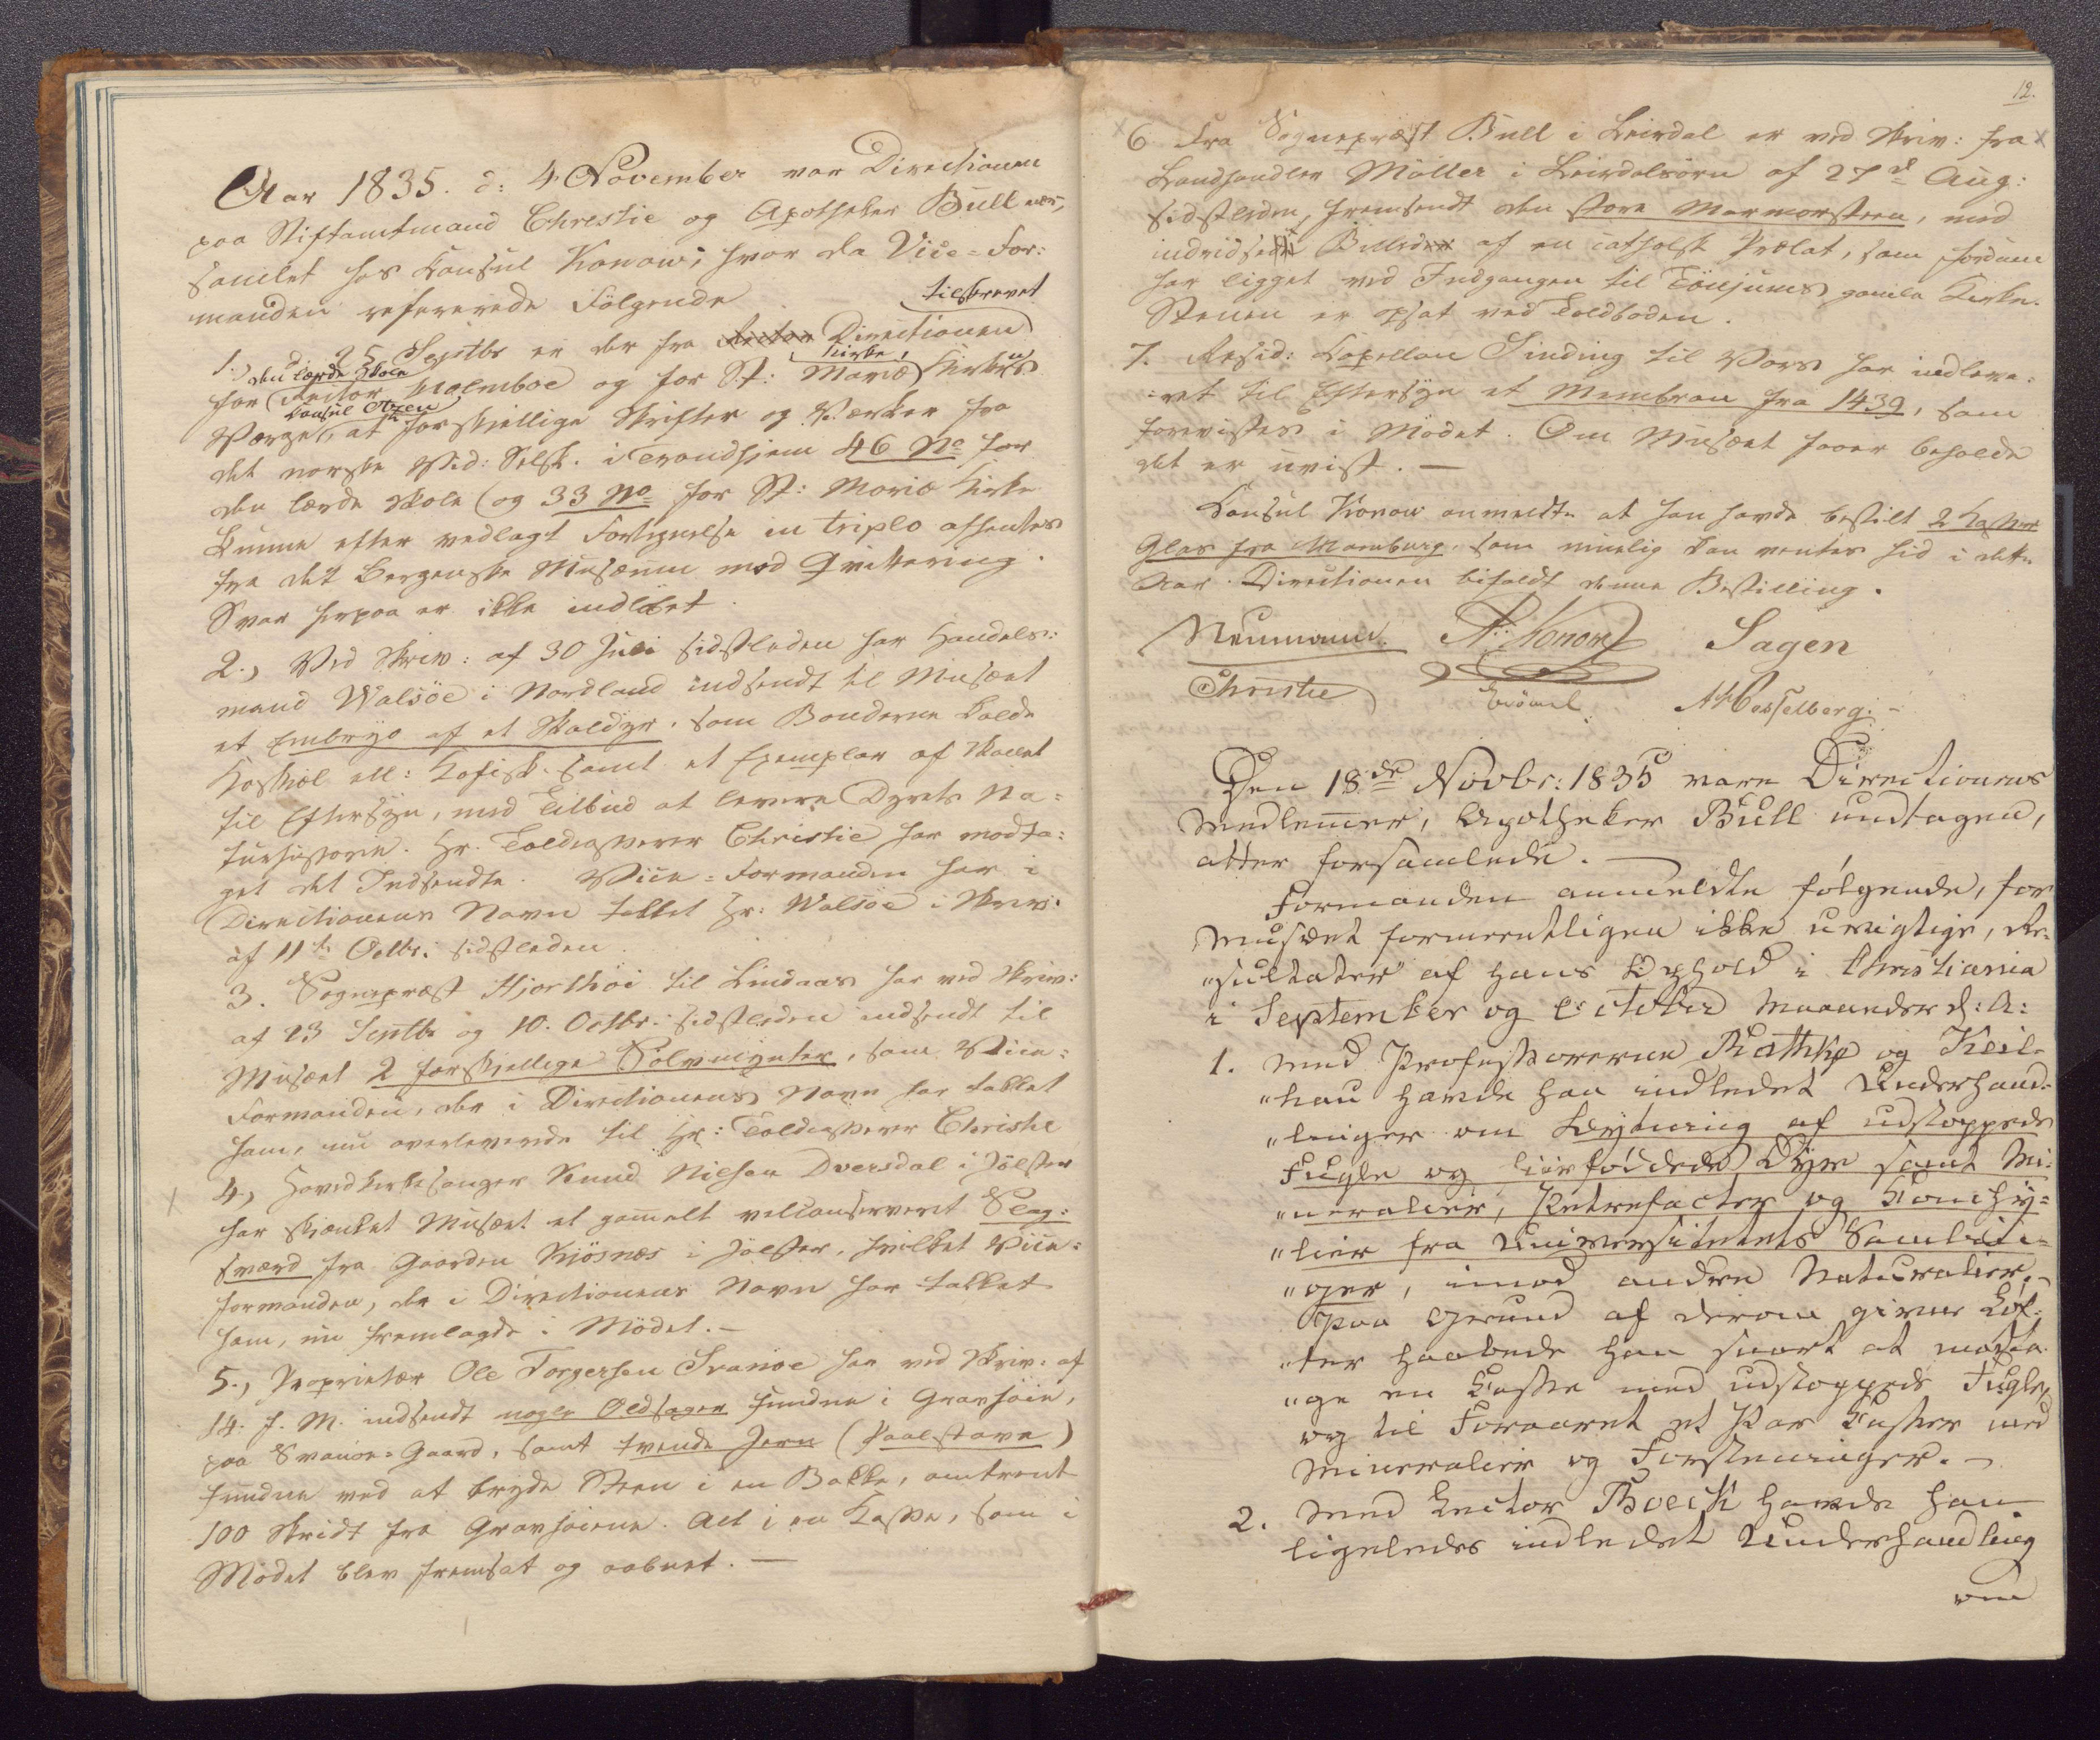 Aar 1835. d: 4 November var Directionen
paa Stiftamtmand Christie og Apotheker Bull nær,
samlet hos Consul Konow; hvor da Vice-For:
manden refererede Fölgende
tilskrevet
1.) den 25 Septbr er der fra Rector Directionen
den lærde Skole Kirke,
for Rector Holmboe og for St: Mariæ Kirkes
Consul
Værge, at forskjellige Skrifter og Værker fra
det norske Vid: Selsk. i Trondhjem 46 No for
den lærde Skole (og 33 No for St: Mariæ Kirke
kunne efter vedlagt Fortegnelse in triplo afhentes
fra det Bergenske Musæum mod Qvittering.
Svar herpaa er ikke indlöbet.
2.) Ved Skriv: af 30 Juli sidstleden har Handels:
mand Walsöe i Nordland indsendt til Musæet
et Embryo af et Skaldyr, som Bönderne kalde
ell: samt et Exemplar af Skallet
til Eftersyn, med Tilbud at levere Dyrets Na:
turhistorie. Hr. Toldkasserer Christie har modta:
get det Indsendte. Vice-Formanden har i
Directionens Navn takket Hr: Walsöe i Skriv:
af 11te Octbr: sidstleden.
3. Sognepræst Hjorthöi til Lindaas har ved Skriv:
af 23 Septbr og 10. Octbr: sidstleden indsendt til
Musæet 2 forskjellige Sölvmynter, som Vice-
Formanden, der i Directionens Navn har takket
ham, nu overleverede til Hr: Toldkasserer Christie
4.) Hovedkirkesanger Knud Nielsen Dversdal i Jölster
har skjænket Musæet et gammelt velconserveret Slag:
sværd fra Gaarden Kjösnæs i Jölster, hvilket Vice-
formanden, der i Directionens Navn har takket
ham, nu fremlagde i Mödet.—
5.) Proprietær Ole Torgersen Svanöe har ved Skriv: af
14: f. M. indsendt nogle Oldsager fundne i Gravhöie,
paa Svanöe-Gaard, samt tvende Jern (Paalstave)
fundne ved at bryde Steen i en Bakke, omtrent
100 Skridt fra Gravhöiene. Alt i en Kasse, som i
Mödet blev fremsat og aabnet.—
12.
6 Fra Sognepræst Bull i Leirdal er ved Skriv: fra
Landhandler Möller i Leirdalsören af 27d Aug:
sidstleden, fremsendt den store Marmorsteen, med
indridsede Billede af en catholsk Prælat, som fordum
har ligget ved Indgangen til Tönjums gamle Kirke.
Stenen er opsat ved Toldboden.
7. Resid: Capellan Sinding til Vors har indleve:
ret til Eftersyn et Membran fra 1439, som
forevistes i Mödet. Om Musæet faaer beholde
det er uvist.—
Consul Konow anmeldte at han havde bestilt 2 Kasser
Glas fra Hamburg, som rimelig kan ventes hid i dette
Aar. Directionen bifaldt denne Bestilling.
Neumann. Konow Sagen
Christie Hesselberg.
Den 18de Novbr: 1835 vare Directionens
Medlemmer, Apotheker Bull undtagen,
atter forsamlede.—
Formanden anmeldte fölgende, for
Musæet formeentligen ikke uvigtige, Re-
„sultater" af hans Ophold i Christiania
i September og October Maaneder d: A:
1. Med Professorerne Rathke og Keil-
„hau havde han indledet Underhand-
„linger om Bytning af udstoppede
Fugle og fiirföddede Dyr samt Mi-
„neralier, Petrefacter og Konchy-
„lier fra Universitetets Samlin-
„ger, imod andre Naturalier.—
Paa Grund af derom givne Löf-
„ter haabede han snart at modta-
„ge en Kasse med udstoppede Fugle,
og til Foraaret et Par Kasser med
Mineralier og Forsteninger.—
2. Med Lector Boeck havde han
ligeledes indledet Underhandling
om